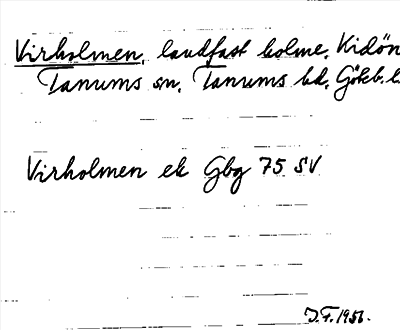 Virholmen, landfast holme, Kidön
Tanums sn, Tanums hd, Gökb. l
Virholmen ek Gbg 75 SV
J.F. 1956.